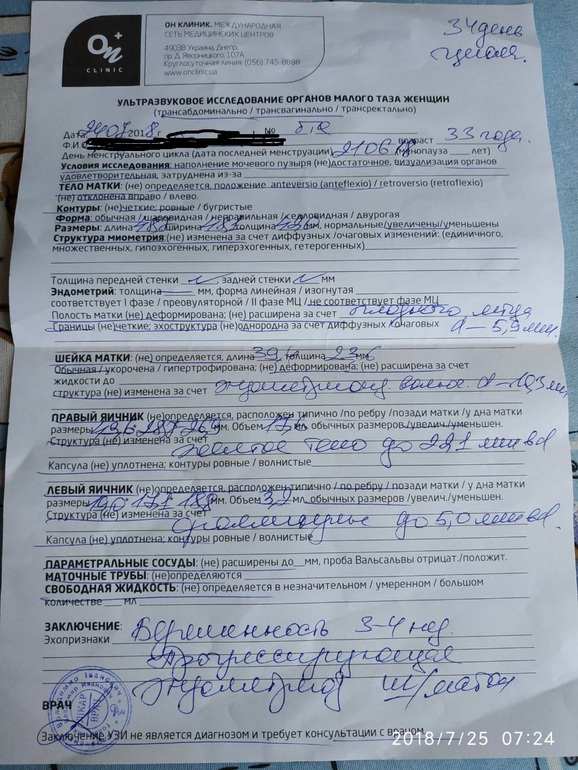 34 день
цикла.
On
CLINIC
ОН КЛИНИК, МЕЖДУНАРОДНАЯ
СЕТЬ МЕДИЦИНСКИХ ЦЕНТРОВ
49038 Украина, Днепр,
пр. Д. Яворницкого, 107А
Круглосуточная линия: (056) 745-8888
www.onclinic.ua
УЛЬТРАЗВУКОВОЕ ИССЛЕДОВАНИЕ ОРГАНОВ МАЛОГО ТАЗА ЖЕНЩИН
(трансабдоминально / трансвагинально / трансректально)
Дата 2018г. № б/о
Ф.И.О. возраст 33 года
День менструального цикла (дата последней менструации) 21067 (менопауза лет)
Условия исследования: наполнение мочевого пузыря (не)достаточное, визуализация органов
удовлетворительная, затруднена из-за
ТЕЛО МАТКИ: (не) определяется, положение anteversio (anteflexio) / retroversio (retroflexio)
(не) отклонена вправо / влево.
Контуры: (не)четкие; ровные / бугристые
Форма: обычная / шаровидная / неправильная / седловидная / двурогая
Размеры: длина ширина толщина мм, нормальные/увеличены/уменьшены
Структура миометрия: (не) изменена за счет диффузных /очаговых изменений: (единичного,
множественных, гипоэхогенных, гиперэхогенных, гетерогенных)
Толщина передней стенки N, задней стенки N мм
Эндометрий: толщина мм, форма линейная / изогнутая
соответствует I фазе / преовуляторной / II фазе МЦ / не соответствует фазе МЦ
Полость матки (не) деформирована; (не) расширена за счет плодного яйца
Границы (не)четкие; эхоструктура (не)однородна за счет диффузных /очаговых d – 5,9 мм.
ШЕЙКА МАТКИ: (не) определяется, длина 39, толщина 23 мм
Обычная / укорочена / гипертрофирована; (не) деформирована; (не) расширена за счет
жидкости до
структура (не) изменена за счет эндометриоз d – 10,3 мм
ПРАВЫЙ ЯИЧНИК (не)определяется, расположен типично / по ребру / позади матки / у дна матки
размеры мм. Объем 17 мл обычных размеров /увелич./уменьшен.
Структура (не) изменена за счет желтое тело до 221 мм
Капсула (не) уплотнена; контуры ровные / волнистые
ЛЕВЫЙ ЯИЧНИК (не)определяется, расположен типично / по ребру / позади матки / у дна матки
размеры мм. Объем 3,2 мл, обычных размеров /увелич./уменьшен.
Структура (не) изменена за счет фолликулы до 5,0 мм
Капсула (не) уплотнена; контуры ровные / волнистые
ПАРАМЕТРАЛЬНЫЕ СОСУДЫ: (не) расширены до мм, проба Вальсальвы отрицат./положит.
МАТОЧНЫЕ ТРУБЫ: (не)определяются
СВОБОДНАЯ ЖИДКОСТЬ: (не) определяется в незначительном / умеренном / большом
количестве мл
ЗАКЛЮЧЕНИЕ:
Эхопризнаки Беременность 3-4 нед.
Прогрессирующая
Эндометриоз ш/матки
ВРАЧ
Заключение УЗИ не является диагнозом и требует консультации с врачом
2018/7/25 07:24